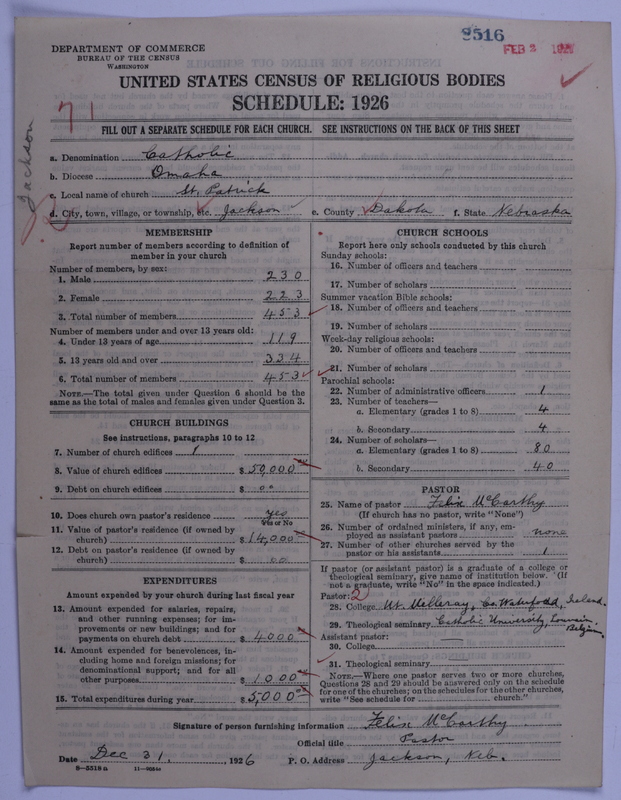 8516
FEB 3 192
DEPARTMENT OF COMMERCE
BUREAU OF THE CENSUS
WASHINGTON
UNITED STATES CENSUS OF RELIGIOUS BODIES
SCHEDULE: 1926
71
Jackson
FILL OUT A SEPARATE SCHEDULE FOR EACH CHURCH. SEE INSTRUCTIONS ON THE BACK OF THIS SHEET
a. Denomination Catholic
b. Diocese Omaha
c. Local name of church St. Patrick
d. City, town, village, or township, etc. Jackson e. County Dakota f. State Nebraska
MEMBERSHIP
Report number of members according to definition of
member in your church
Number of members, by sex:
1. Male 230
2. Female 223
3. Total number of members 453
Number of members under and over 13 years old:
4. Under 13 years of age 119
5. 13 years old and over 334
6. Total number of members 453
NOTE.—The total given under Question 6 should be
same as the total of males and females given under Question 3.
CHURCH BUILDINGS
See instructions, paragraphs 10 to 12
7. Number of church edifices 1
8. Value of church edifices $ 50,000
9. Debt on church edifices $ 00
10. Does church own pastor's residence yes
Yes or No
11. Value of pastor's residence (if owned by
church) $ 14,000
12. Debt on pastor's residence (if owned by
church) $ 00
EXPENDITURES
Amount expended by your church during last fiscal year
13. Amount expended for salaries, repairs,
and other running expenses; for im-
provements or new buildings; and for
payments on church debt $ 4000
14. Amount expended for benevolences, in-
cluding home and foreign missions; for
denominational support; and for all
other purposes $ 1000
15. Total expenditures during year $ 5,000
CHURCH SCHOOLS
Report here only schools conducted by this church
Sunday schools:
16. Number of officers and teachers
17. Number of scholars
Summer vacation Bible schools:
18. Number of officers and teachers
19. Number of scholars
Week-day religious schools:
20. Number of officers and teachers
21. Number of scholars
Parochial schools:
22. Number of administrative officers 1
23. Number of teachers—
a. Elementary (grades 1 to 8) 4
b. Secondary 4
24. Number of scholars—
a. Elementary (grades 1 to 8) 80
b. Secondary 40
PASTOR
25. Name of pastor Felix McCarthy
(If church has no pastor, write "None")
26. Number of ordained ministers, if any, em-
ployed as assistant pastors none
27. Number of other churches served by the
pastor or his assistants 1
If pastor (or assistant pastor) is a graduate of a college or
theological seminary, give name of institution below. (If
not a graduate, write "No" in the space indicated.)
Pastor: 2
28. College Mt. Melleray, Co. Waterford, Ireland.
29. Theological seminary Catholic University, Louvain, Belgium
Assistant pastor:
30. College
31. Theological seminary
NOTE.—Where one pastor serves two or more churches,
Questions 28 and 29 should be answered only on the schedule
for one of the churches; on the schedules for the other churches,
write "See schedule for church."
Signature of person furnishing information Felix McCarthy
Official title Pastor
Date Dec 31, 1926 P. O. Address Jackson, Neb.
8-5518 a